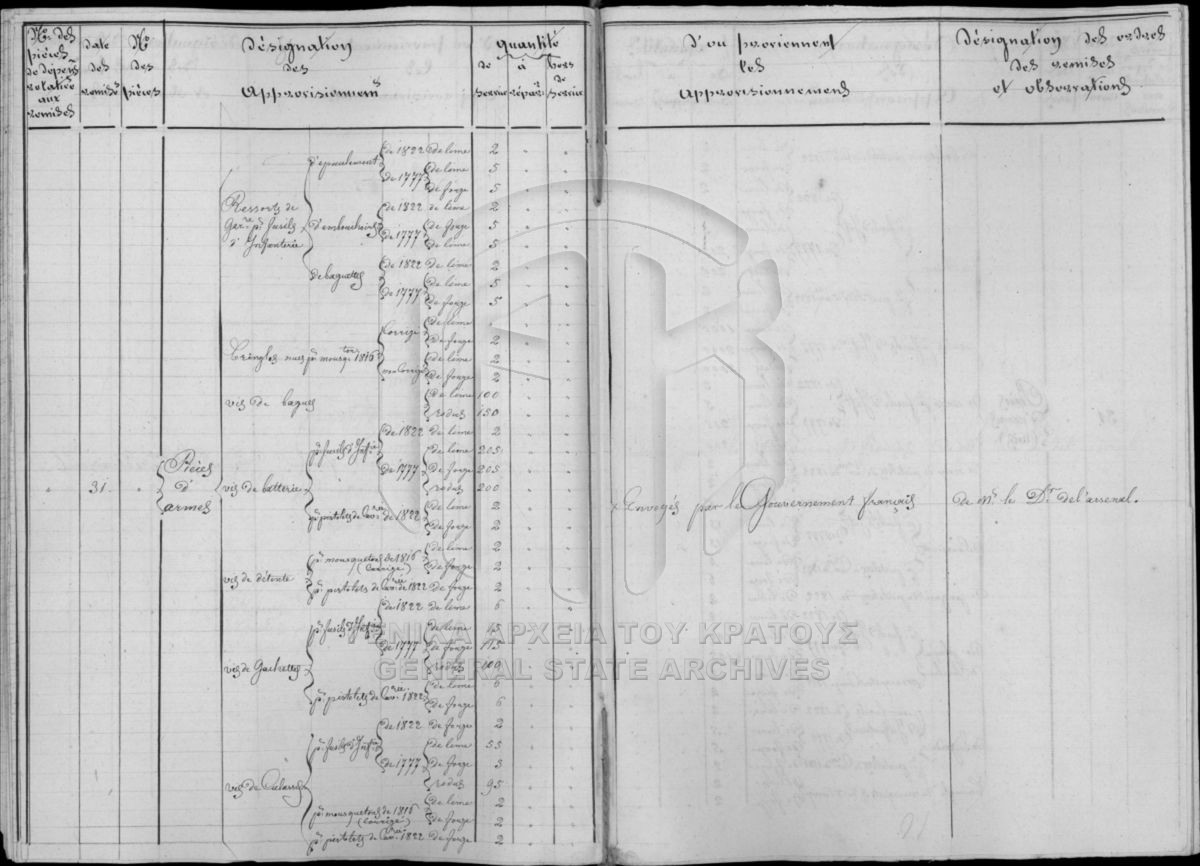 Nos des pièces de dépense relative aux remises
date des remises
No des pièces
Désignation des Approvisionnemts
quantité
de service
à répar.
hors de service
D'où proviennent les Approvisionnemens
Désignation des ordres des remises et observations
31.
Pièces d' armes
Ressorts de Garre pr fusils d' Infanterie
D'épaulement
de 1822 de lime 2
de 1777
de lime 5
de forge 5
D'embouchoirs
de 1822 de lime 2
de 1777
de forge 5
de lime 5
De baguettes
de 1822 de lime 2
de 1777
de lime 5
de forge 5
Tringles nues pr mousqton 1816
Corrigé
de lime
de forge 2
non Corrigé
de lime 2
de forge 2
vis de bagues
de lime 100
rodés 150
vis de batterie
pr fusils d'Infie
de 1822 de lime 2
de 1777
de lime 205
de forge 205
rodés 200
pr pistolets de Cavrie de 1822
de lime 2
de forge 2
vis de détente
pr mousquetons de 1816 (corrigé)
de lime 2
de forge 2
pr pistolets de Cavrie de 1822 de forge 2
vis de Gachettes
pr fusils d'Infie
de 1822 de lime 6
de 1777
de lime 45
de forge 115
rodés 100
pr pistolets de Cavrie 1822
de lime 6
de forge 6
vis de Culasses
pr fusils d'Infie
de 1822 de forge 2
de 1777
de lime 55
de forge 5
rodés 95
pr mousquetons de 1816 (corrigé)
de lime 2
de forge 2
pr pistolets de Cavrie 1822 de forge 2
Envoyés par le Gouvernement français
de Mr le Dr de l'arsenal.
ΓΕΝΙΚΑ ΑΡΧΕΙΑ ΤΟΥ ΚΡΑΤΟΥΣ
GENERAL STATE ARCHIVES